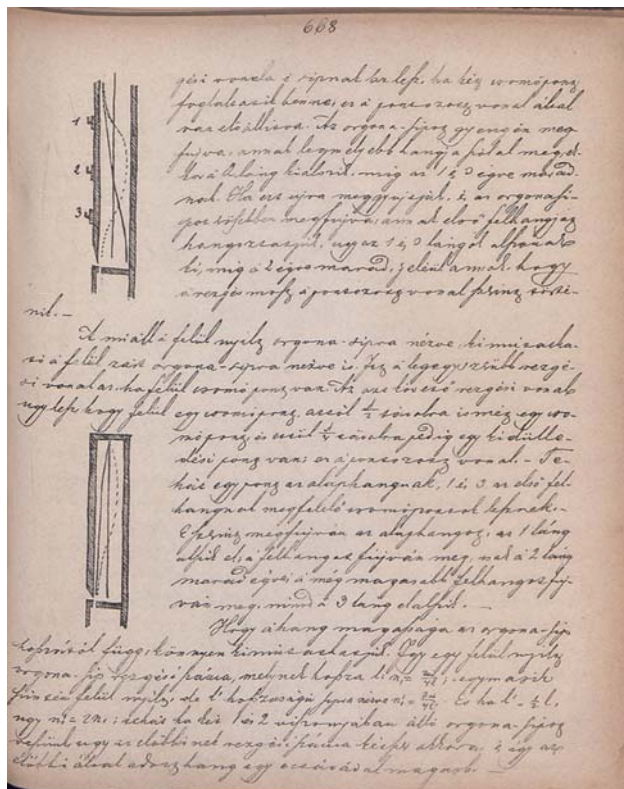 668
1
2
3
rezgési vonala a sipnak az lesz, ha két csomópont
foglaltatik benne, ez a pontozott vonal által
van előállitva. Az orgona-sipot gyengén meg-
fujva, annak legmélyebb hangja
láng kialszik, mig az 1 és 3 égve marad-
nak. Ha ezt ujra meggyujtjuk, és az orgonasi-
pot erősebben megfujva, annak első felhangját
hangoztatjuk, ugy az 1 és 3 lángot
ki, mig a 2 égve marad, jeléül annak, hogy
a rezgés most a pontozott vonal szerint törté-
nik. —
A mi áll a felül nyilt orgona-sipra nézve, kimutatha-
tó a felül zárt orgona-sipra nézve is. Itt a legegyszerübb rezgé-
si vonal az, ha felül csomópont van. Az azt követő rezgési vonal
ugy lesz, hogy felül egy csomópont, attól távolra ismét egy cso-
mópont, és ettől távolra pedig egy kidülle-
dési pont van; ez a pontozott vonal. — Te-
hát egy pont az alaphangnak, 1 és 3 az első fel-
hangnak megfelelő csomópontok lesznek. —
E szerint megfujván az alaphangot, az 1 láng
alszik el; a felhangot fujván meg, csak a 2 láng
marad égve; a még magasabb felhangot fuj-
ván meg, mind a 3 láng elalszik. —
Hogy a hang magassága az orgona-sip
hosszától függ, könnyen kimutathatjuk. Igy egy felül nyilt
orgona-sip rezgési száma, melynek hossza l: egy másik
szintén felül nyilt, de l' hosszuságu sipra nézve És ha l' = ½ l,
ugy n' = 2n; tehát ha két 1 és 2 viszonyában álló orgona-sipot
veszünk, ugy az előbbinek rezgési száma kétszer akkora, és igy az
előbbi által adott hang egy octávával magasb. —